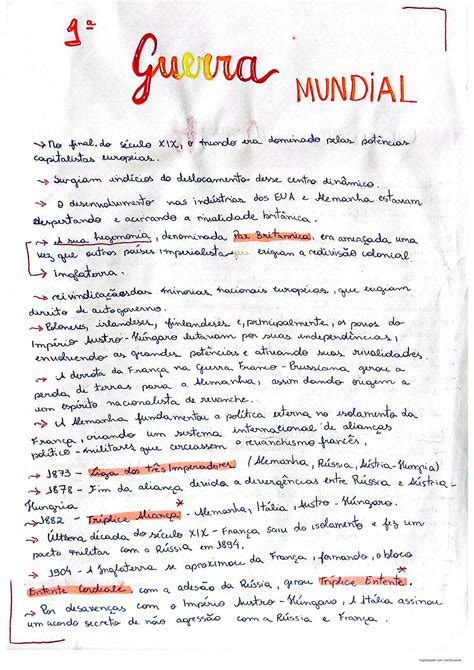 1ª
Guerra MUNDIAL
→ No final do século XIX, o mundo era dominado pelas potências
capitalistas europeias.
→ Surgiam indícios do deslocamento desse centro dinâmico.
→ O desenvolvimento nas indústrias dos EUA e Alemanha estavam
despertando e acirrando a rivalidade britânica.
→ A sua hegemonia, denominada Pax Britannica, era ameaçada uma
vez que outros países imperialista que exigiam a redivisão colonial
→ Inglaterra.
→ reivindicações das minorias nacionais europeias, que exigiam
direito de autogoverno.
→ Poloneses, irlandeses, finlandeses e, principalmente, os povos do
Império Austro-Húngaro lutavam por suas independências,
envolvendo as grandes potências e ativando suas rivalidades.
→ A derrota da França na Guerra Franco-Prussiana gerou a
perda de terras para a Alemanha, assim dando origem a
um espírito nacionalista de revanche.
→ A Alemanha fundamentou a política externa no isolamento da
França, criando um sistema internacional de alianças
político-militares que cercassem o revanchismo francês.
→ 1873 - Liga dos três Imperadores (Alemanha, Rússia, Áustria-Hungria)
→ 1878 - Fim da aliança devido a divergências entre Rússia e Áustria-
Hungria
→ 1882 - Tríplice Aliança* - Alemanha, Itália, Austro-Húngaro.
→ Última década do século XIX - França saiu do isolamento e fez um
pacto militar com a Rússia em 1894.
→ 1904 - A Inglaterra se aproximou da França, formando o bloco
Entente Cordiale, com a adesão da Rússia, gerou Tríplice Entente.*
→ Por desavenças com o Império Austro-Húngaro, A Itália assinou
um acordo secreto de não agressão com a Rússia e França.
Digitalizado com CamScanner